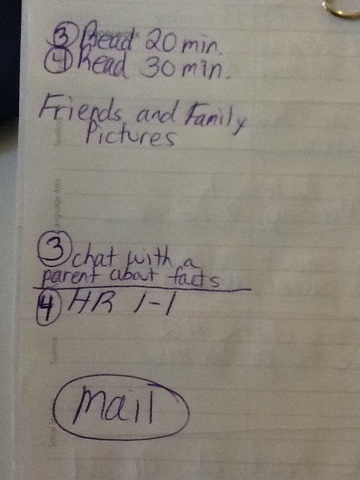 ③ Read 20 min.
④ Read 30 min.
Friends and Family
Pictures
③ chat with a
parent about facts
④ HR 1-1
Mail